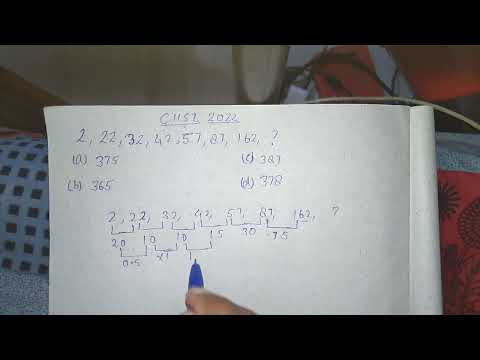 CHSL 2022
2, 22, 32, 42, 57, 87, 162, ?
(a) 375 (c) 387
(b) 365 (d) 378
2, 22, 32, 42, 57, 87, 162, ?
20 10 10 15 30 75
0.5 x1 1